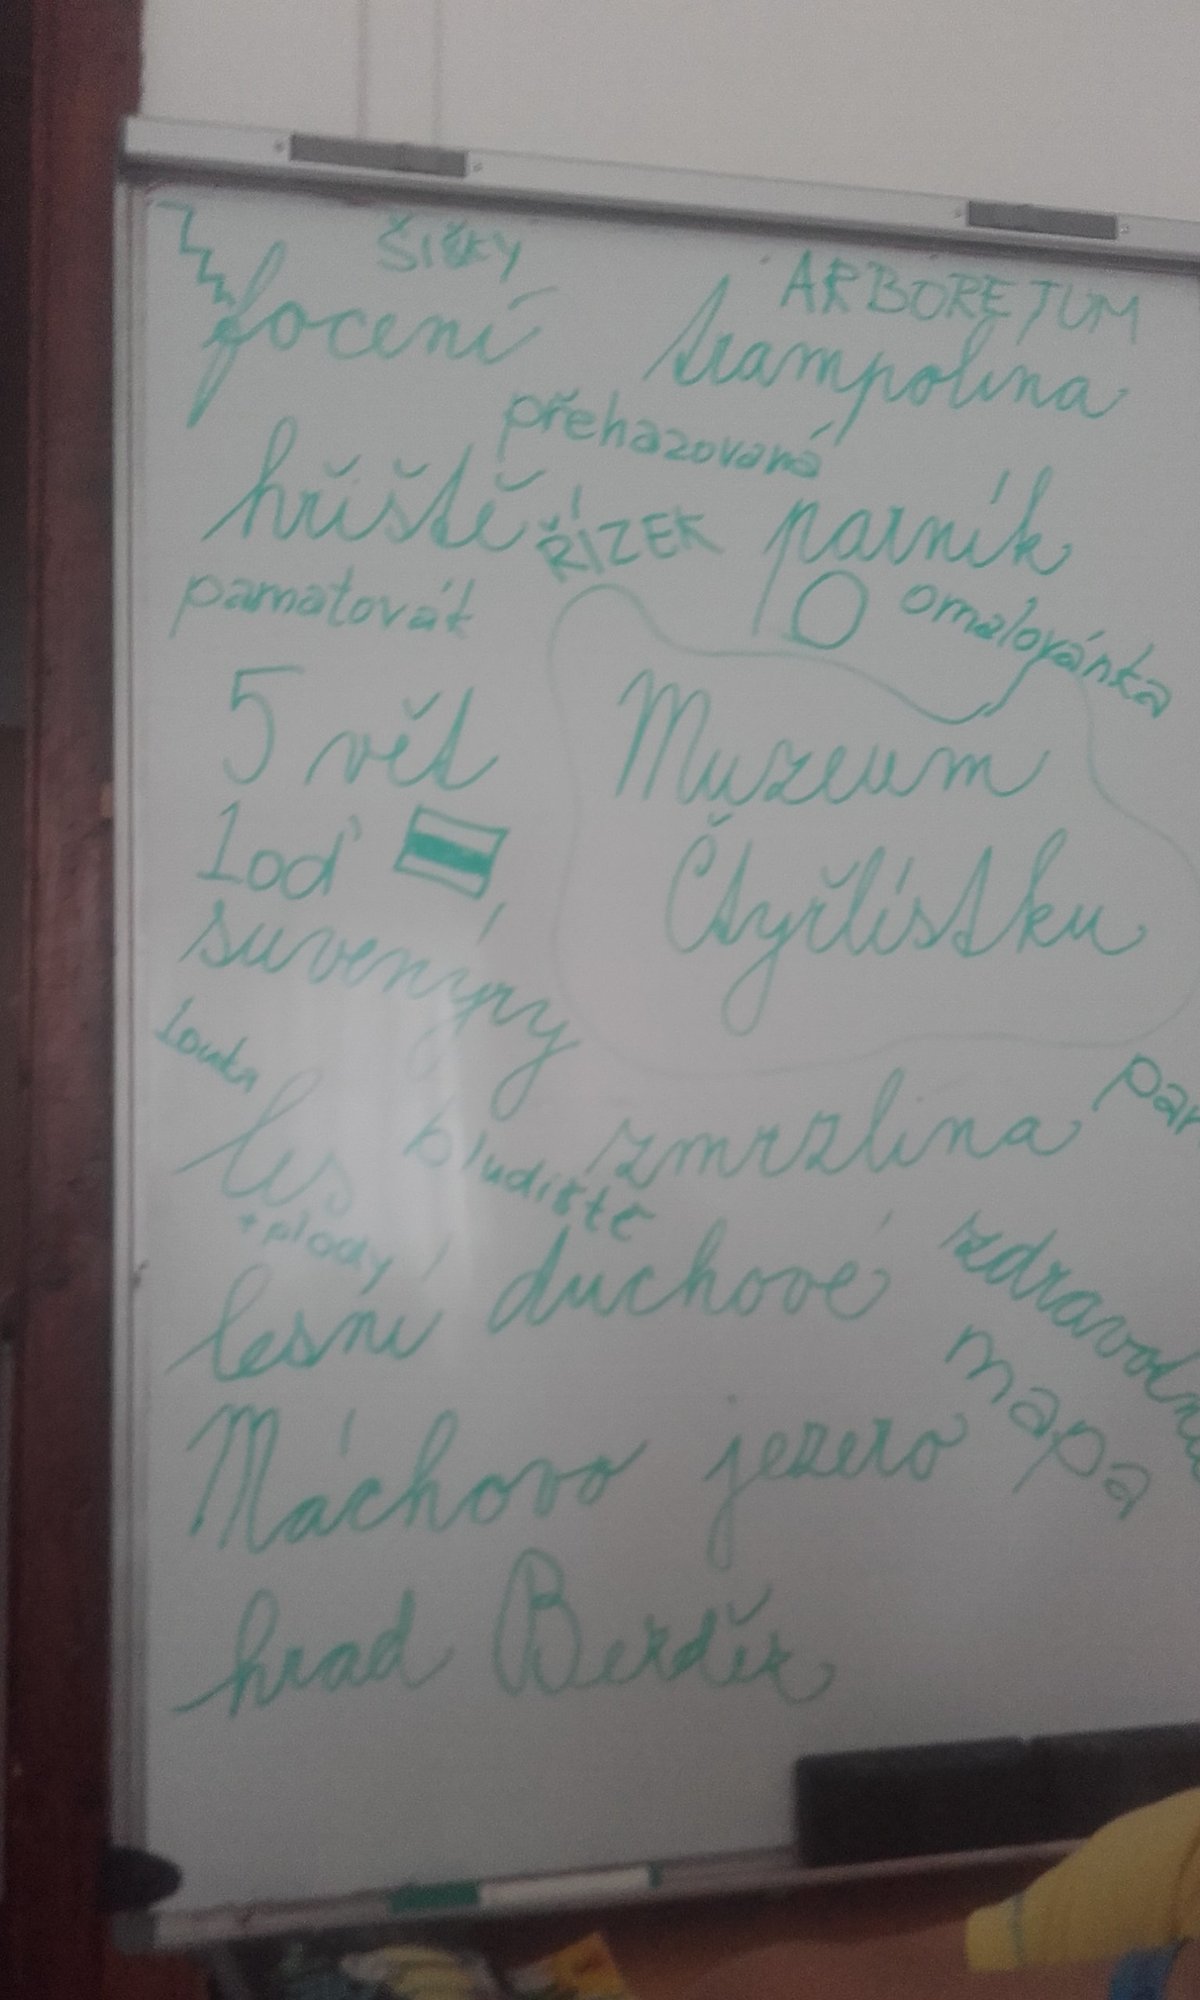 šišky
ARBORETUM
focení
trampolina
přehazovaná
hřiště
ŘÍZEK
parník
pamatovát
omalovánka
5 vět
Muzeum
Čtyřlístku
loď
suvenýry
louka
les
bludiště
zmrzlina
par
+ plody
lesní duchové
zdravotní
mapa
Máchovo jezero
hrad Bezděz